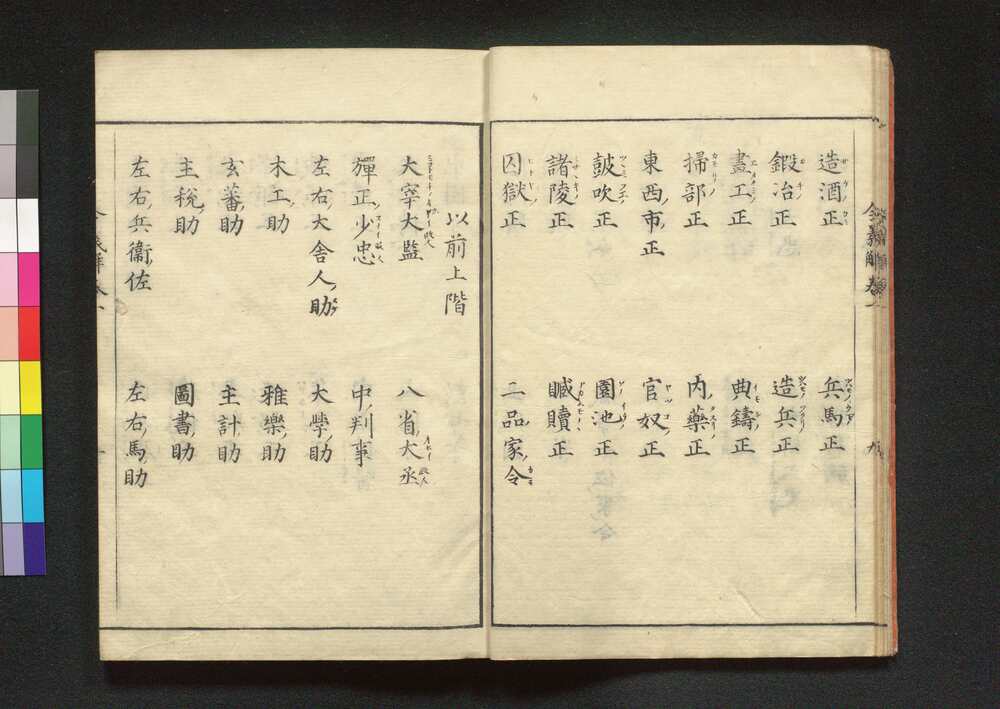 造酒正 兵馬正
鍛冶正 造兵正
畫工正 典鑄正
掃部正 內藥正
東西市正 官奴正
鼓吹正 園池正
諸陵正 贓贖正
囚獄正 二品家令
以前上階
大宰大監 八省大丞
彈正少忠 中判事
左右大舍人助 大學助
木工助 雅樂助
玄蕃助 主計助
主稅助 圖書助
左右兵衞佐 左右馬助
令義解卷一 九